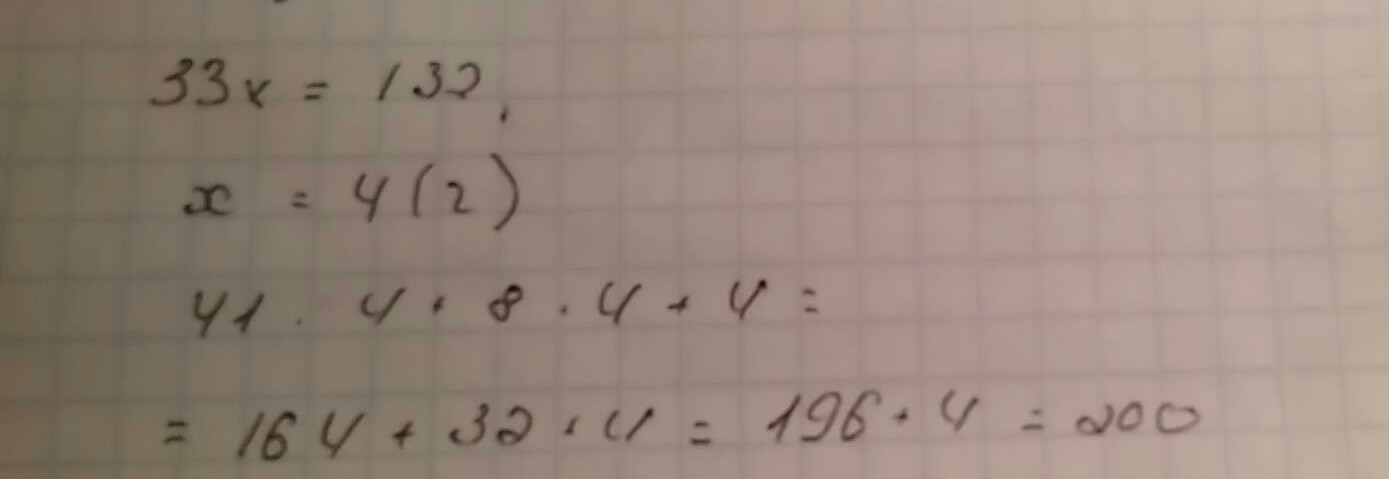 33x = 132,
x = 4(2)
41 · 4 + 8 · 4 + 4 =
= 164 + 32 + 4 = 196 + 4 = 200